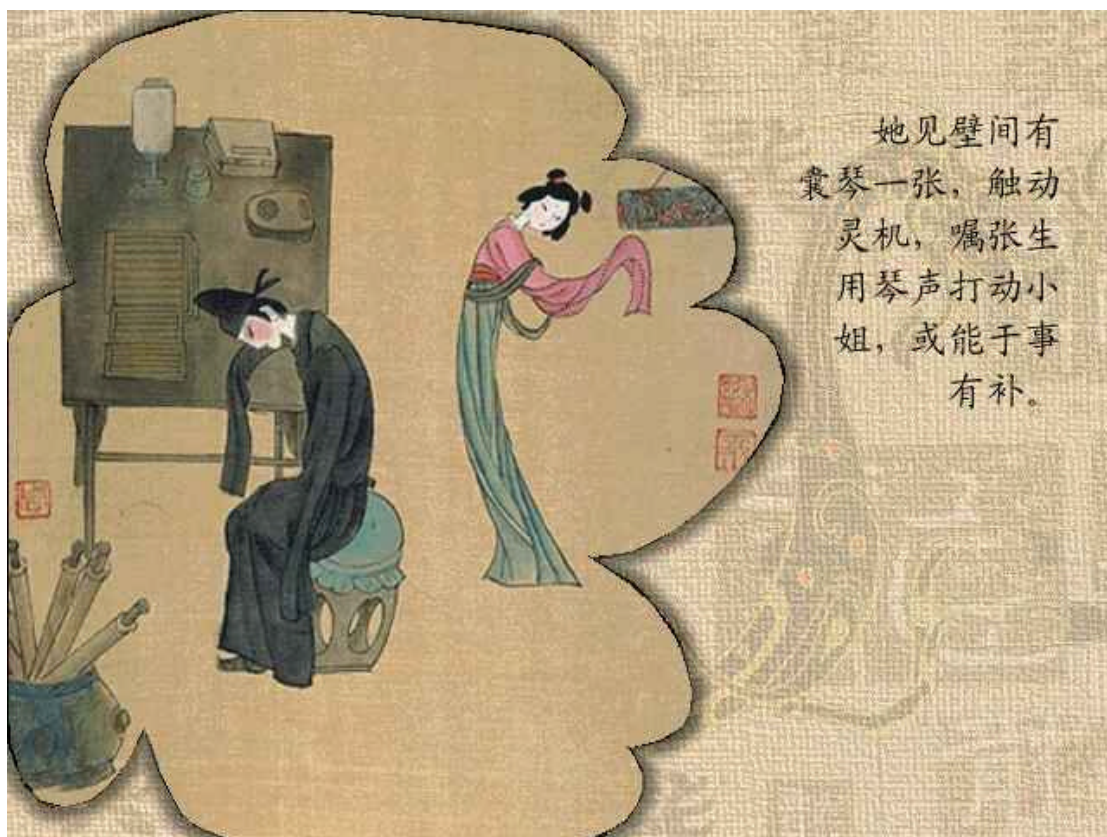 她见壁间有
囊琴一张，触动
灵机，嘱张生
用琴声打动小
姐，或能于事
有补。